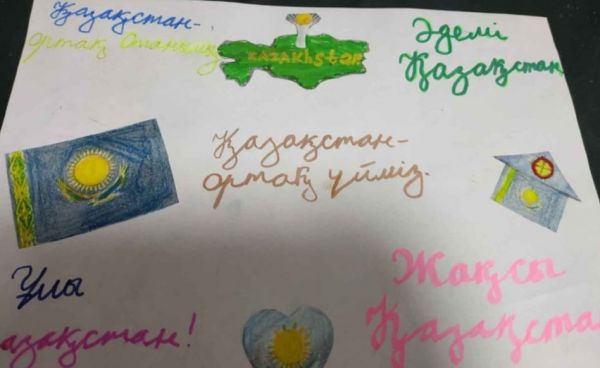 Қазақстан-
ортақ Отанымыз
KAZAKhStan
Әдемі
Қазақстан
Қазақстан-
ортақ үйміз.
Ұлы
азақстан!
Жақсы
Қазақста